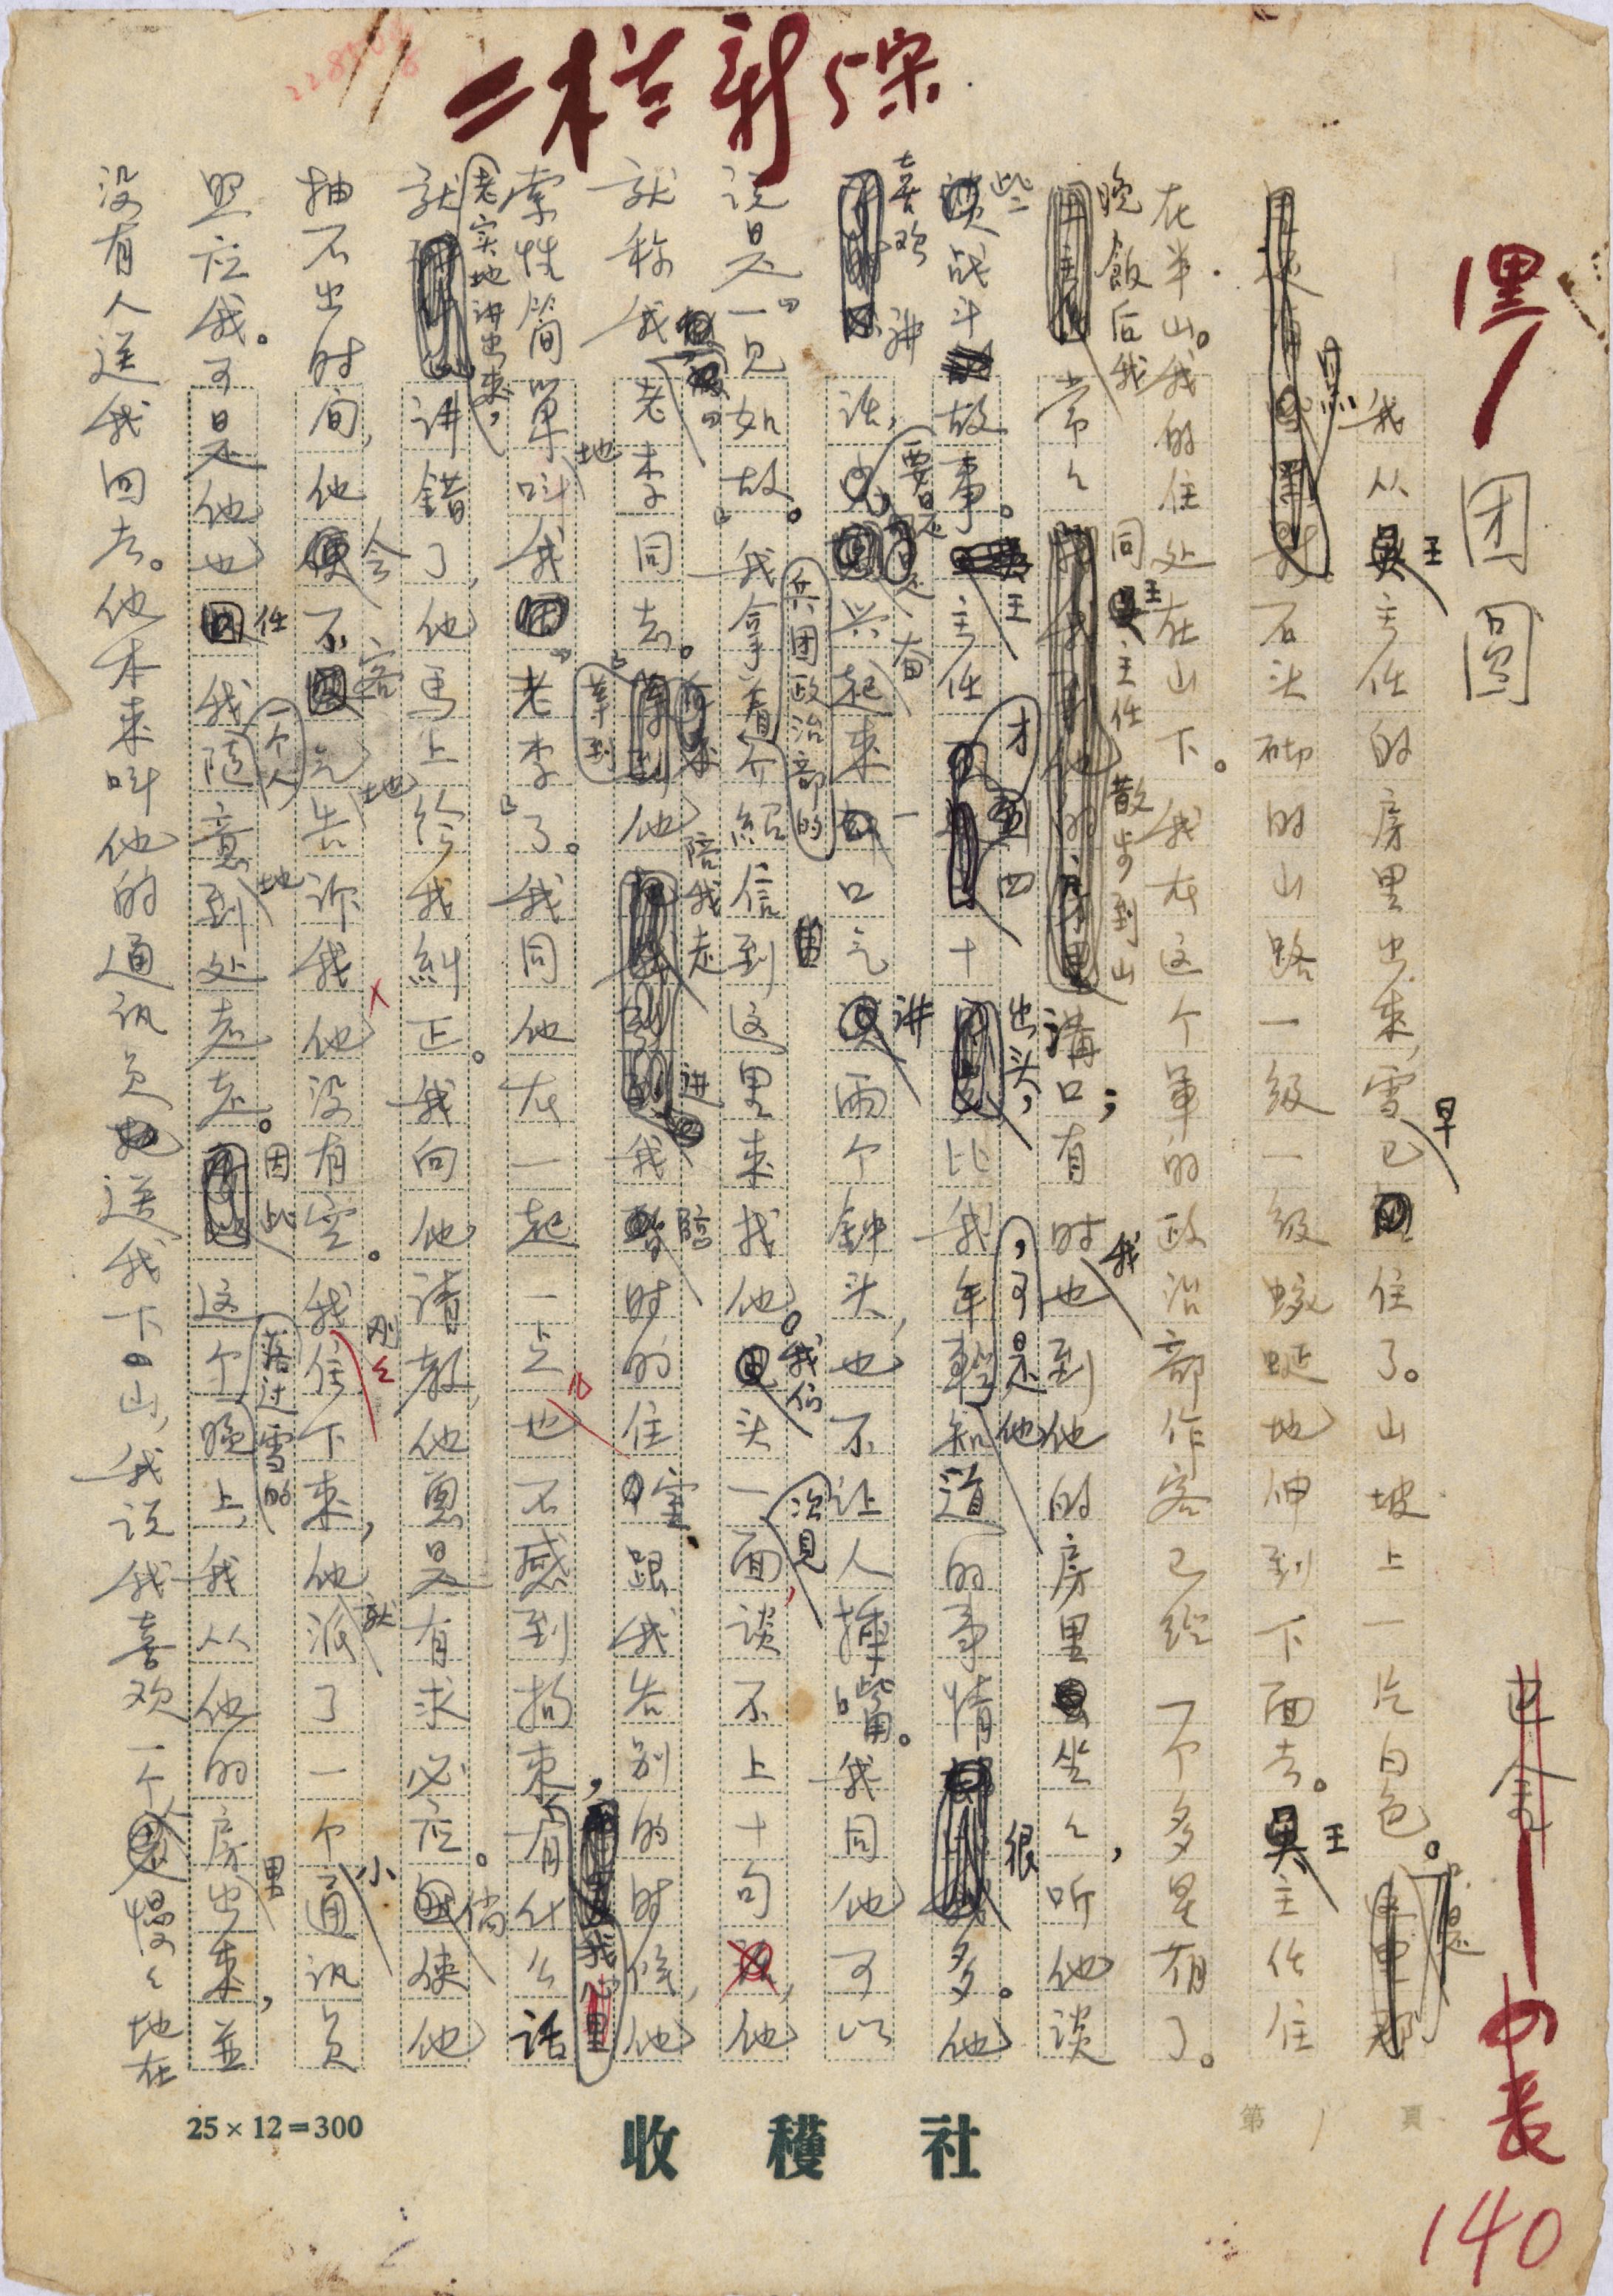 二栏新5宋
黑
团圆
巴金
140
我从王主任的房里出来,雪早已住了。山坡上一片白色。
石头砌的山路一级一级蜿蜒地伸到下面去。王主任住
在半山。我的住处在山下。我在这个军的政治部作客已经一个多星期了。
晚飯后我常々同王主任散步到山溝口;有时我也到他的房里坐々,听他谈
些战斗故事。王主任才四十出头,比我年輕,可是他知道的事情很多。他
喜欢讲话,要是兴奋起来,一口气讲两个钟头,也不让人插嘴。我同他可以
说是“一见如故”。我拿着兵团政治部的介紹信到这里来找他。我们头一次見面,谈不上十句,他
就称我“老李同志”。等到他陪我走进我临时的住室、跟我告别的时候,他
索性简单地叫我“老李”了。我同他在一起一点儿也不感到拘束,我心里有什么话
就老实地讲出来,讲錯了,他馬上给我糾正。我向他请教,他更是有求必应。倘使他
抽不出时间,他会不客气地告诉我他没有空。我刚々住下来,他就派了一个小通讯员
照应我。可是他也任我一个人随意地到处走走。因此这个落过雪的晚上,我从他的房里出来,並
没有人送我回去。他本来叫他的通讯员送我下山,我说我喜欢一个人慢々地在
25×12=300
收穫社
第 1 頁